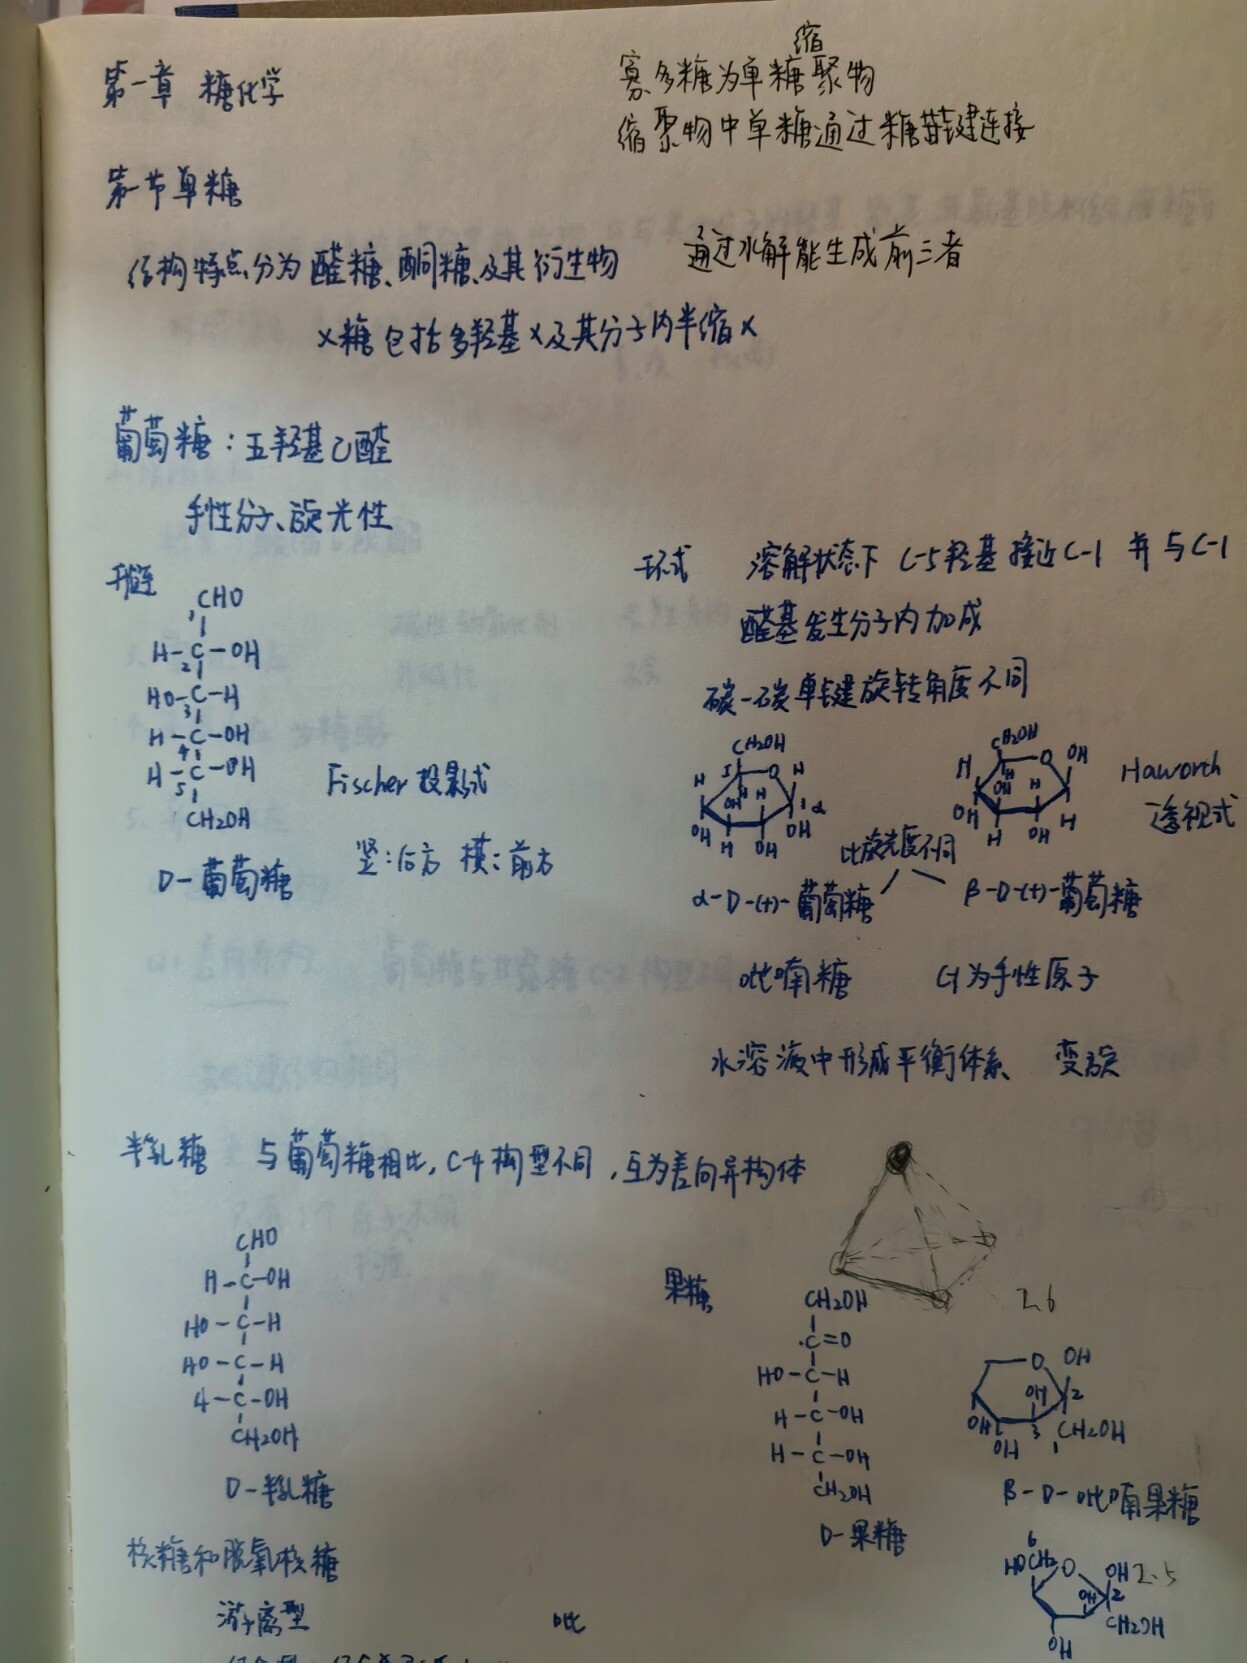 第一章 糖化学
寡多糖为单糖缩聚物
缩聚物中单糖通过糖苷键连接
第一节单糖
结构特点分为醛糖、酮糖及其衍生物
通过水解能生成前三者
x糖包括多羟基x及其分子内半缩x
葡萄糖：五羟基乙醛
手性分子、旋光性
开链
环式 溶解状态下 C-5羟基接近C-1 并与C-1
醛基发生分子内加成
碳-碳单键旋转角度不同
1CHO
H-C-OH
2
HO-C-H
3
H-C-OH
4
H-C-OH
5
CH2OH
D-葡萄糖
Fischer投影式
竖：后方 横：前方
CH2OH
5 O H
H H H 1 α
OH OH
H OH
CH2OH
O OH
H H
OH H
OH H
H OH
Haworth
透视式
比旋光度不同
α-D-(+)-葡萄糖
β-D-(+)-葡萄糖
吡喃糖 C1为手性原子
水溶液中形成平衡体系 变旋
半乳糖 与葡萄糖相比，C-4构型不同，互为差向异构体
CHO
H-C-OH
HO-C-H
HO-C-H
4-C-OH
CH2OH
D-半乳糖
果糖
CH2OH
C=O
HO-C-H
H-C-OH
H-C-OH
CH2OH
D-果糖
2.6
O OH
OH 2
OH 3 CH2OH
OH 1
β-D-吡喃果糖
6
HOCH2 O OH 2.5
OH 2
CH2OH
OH
核糖和脱氧核糖
游离型 吡